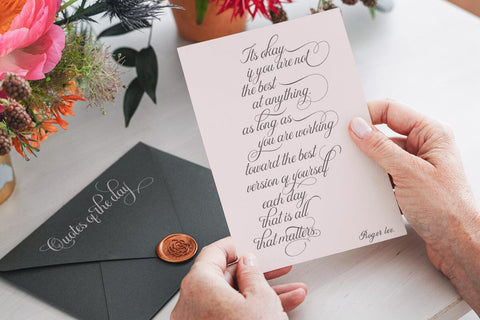 Its okay
if you are not
the best
at anything,
as long as
you are working
toward the best
version of yourself
each day
that is all
that matters.
Roger lee.
Quotes of the day